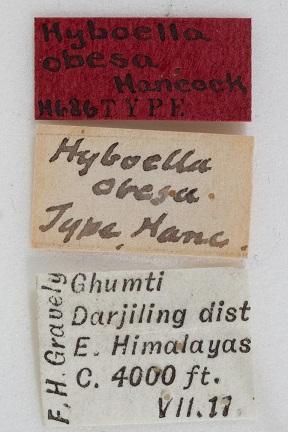 Hyboella
obesa
Hancock
H686TYPE
Hyboella
obesa.
Type, Hanc.
F. H. Gravely
Ghumti
Darjiling dist
E. Himalayas
C. 4000 ft.
VII.11.